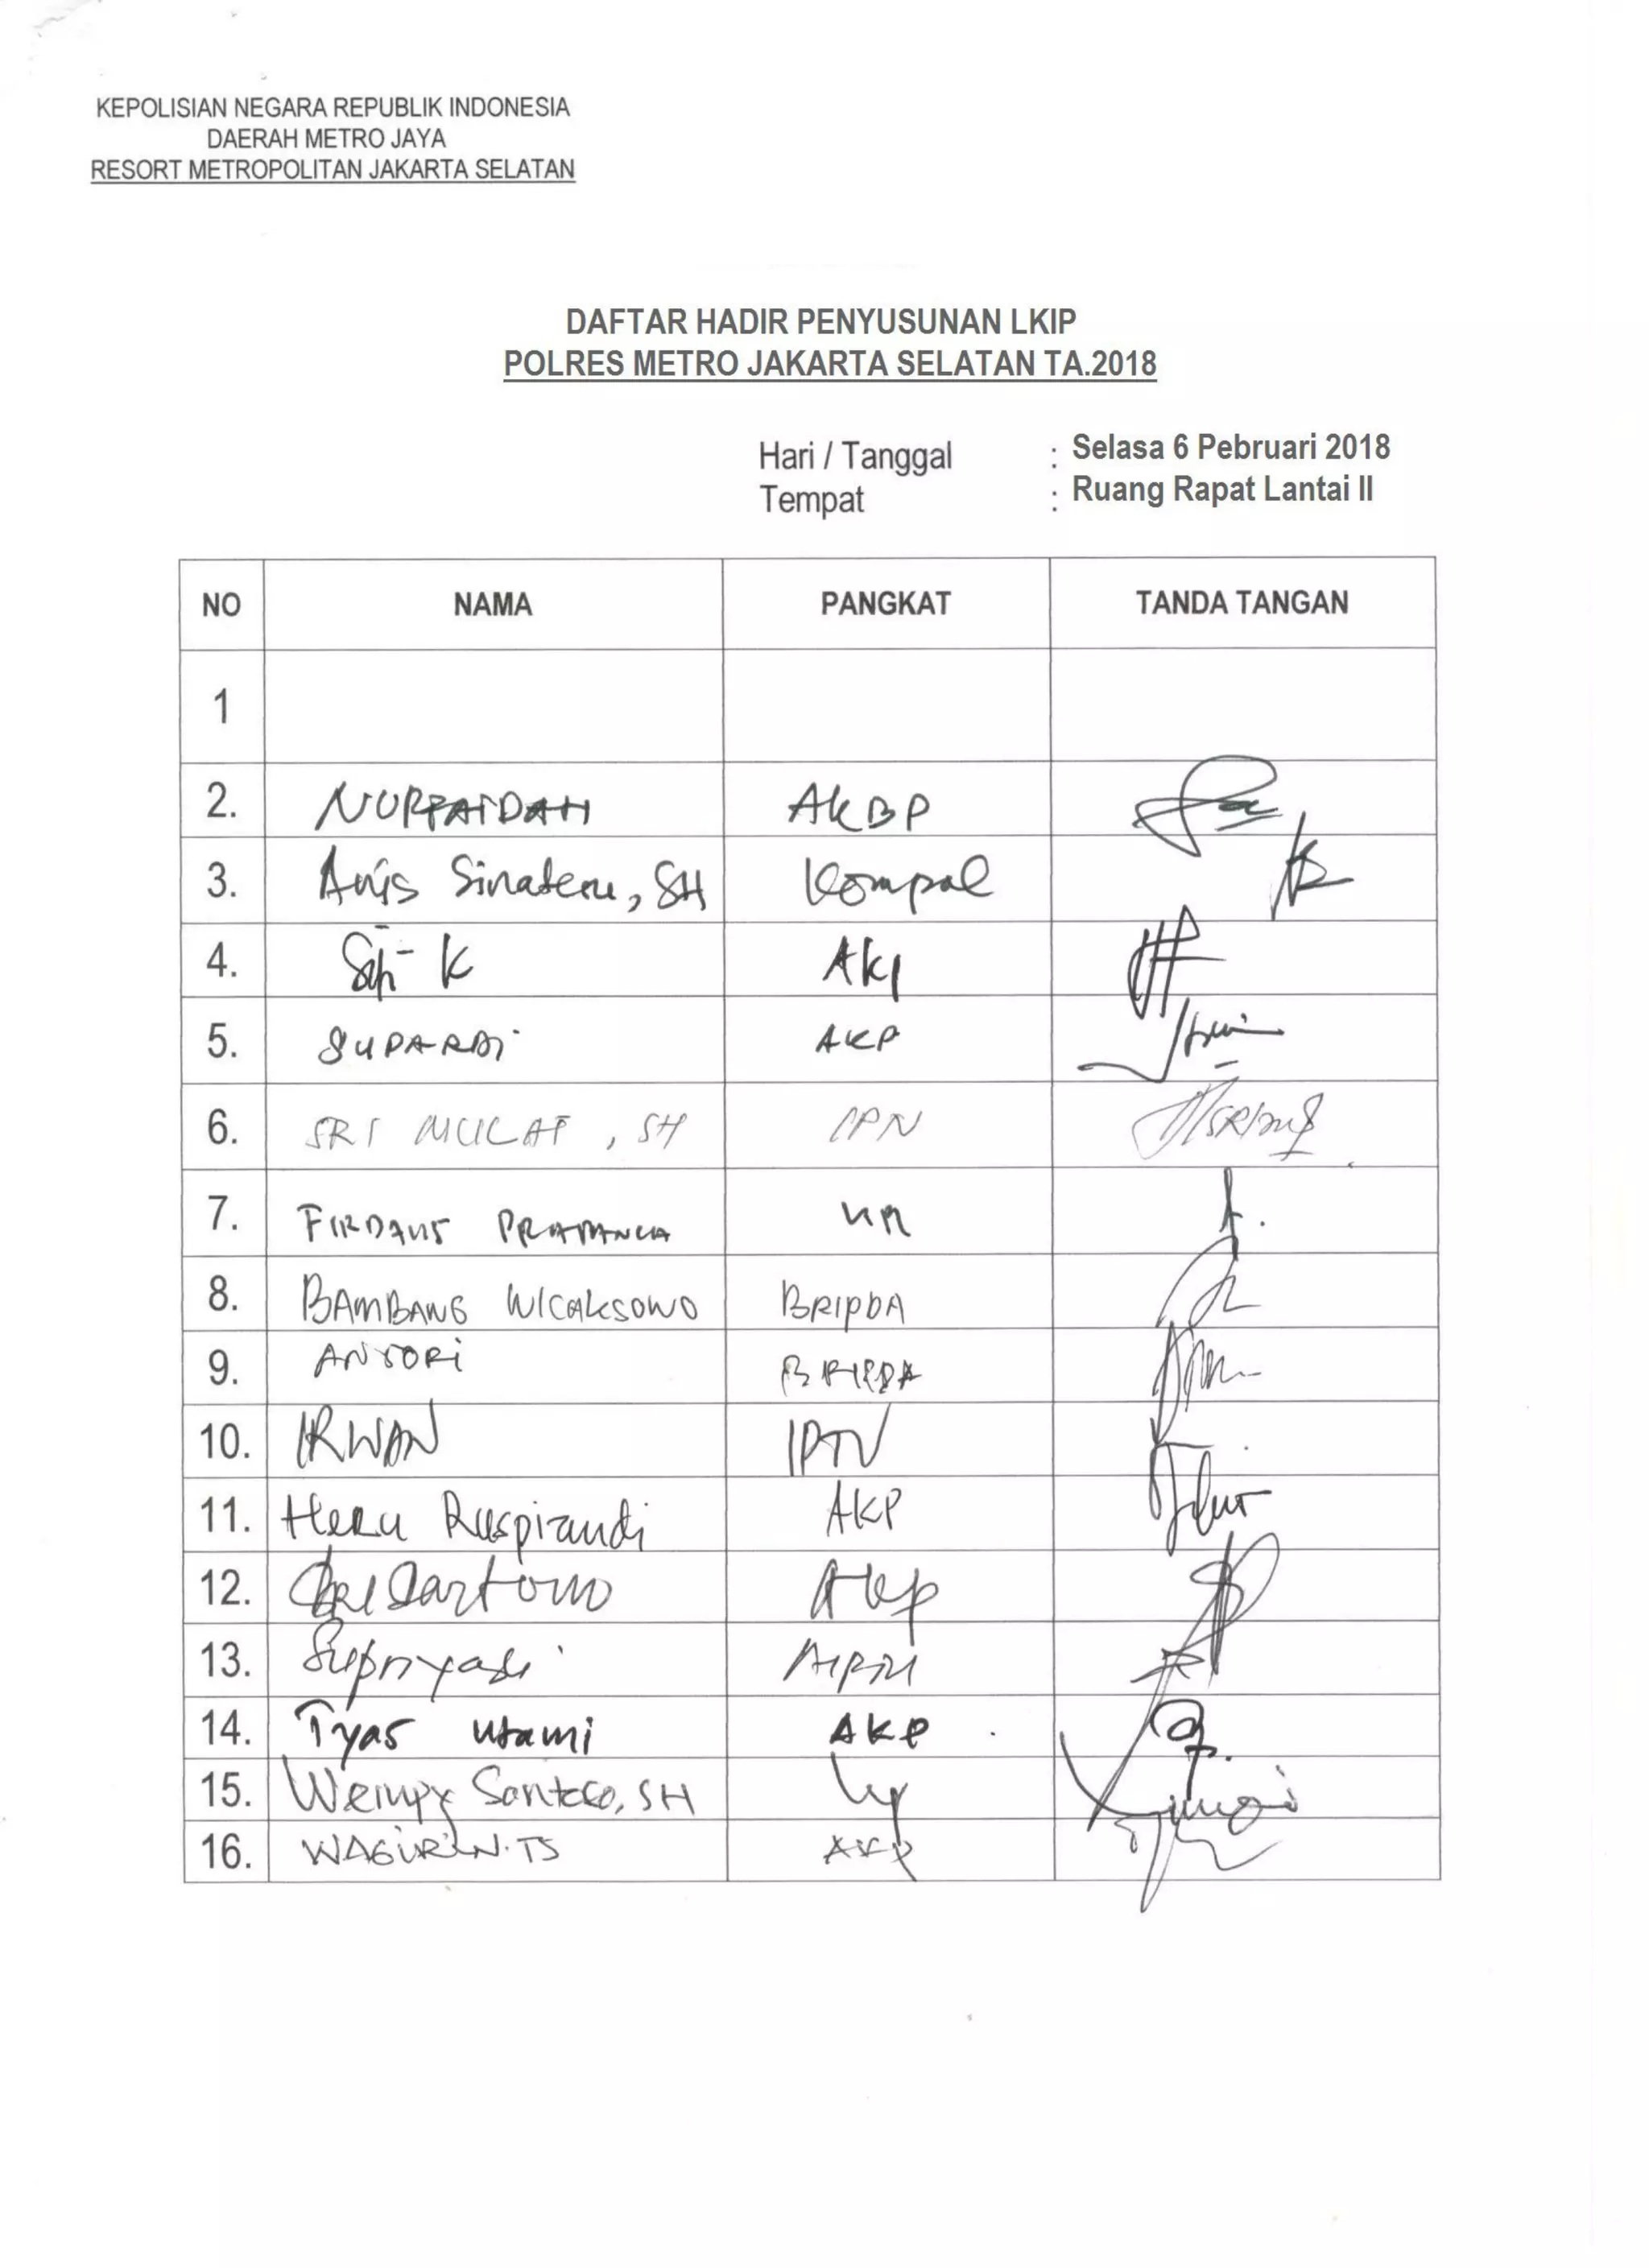 KEPOLISIAN NEGARA REPUBLIK INDONESIA
DAERAH METRO JAYA
RESORT METROPOLITAN JAKARTA SELATAN
DAFTAR HADIR PENYUSUNAN LKIP
POLRES METRO JAKARTA SELATAN TA.2018
Hari / Tanggal : Selasa 6 Pebruari 2018
Tempat : Ruang Rapat Lantai II
NO NAMA PANGKAT TANDA TANGAN
1
2. NURFAIDAH AKBP
3. Anis Sinateru, SH Kompol
4. K AKP
5. SUPARDI AKP
6. SRI MULAT, SH
7. FIRDAUS
8. BAMBANG WICAKSONO BRIPDA
9. ANSORI BRIPDA
10. IRWAN IPTU
11. Heru Ruspiandi AKP
12. AKP
13. Supriyadi
14. Tyas Utami AKP
15. Wempy Santoso, SH
16. WAGIRIN.TS AKP